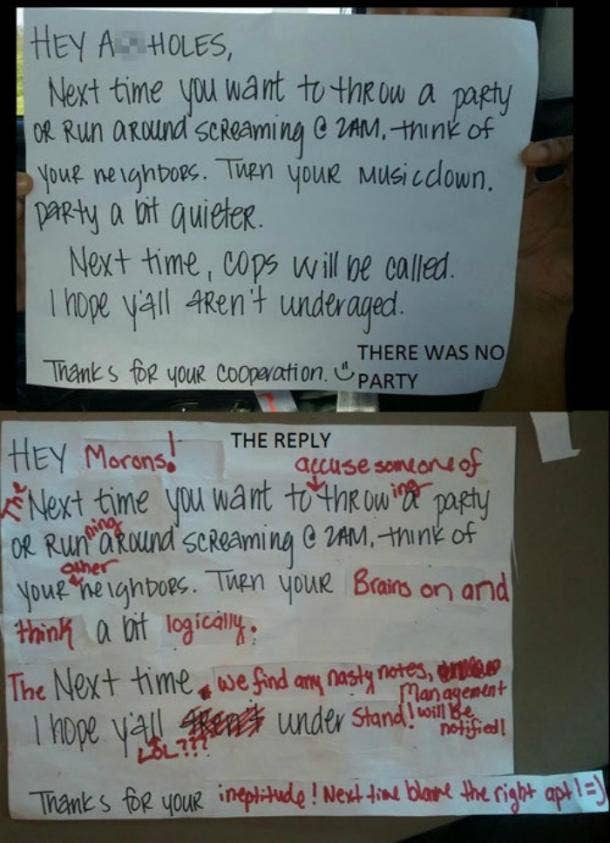 HEY A HOLES,
Next time you want to throw a party
or Run around screaming @ 2AM, think of
your neighbors. Turn your music down.
party a bit quieter.
Next time, cops will be called.
I hope y'all aren't underaged.
Thanks for your cooperation.
THERE WAS NO
PARTY
THE REPLY
HEY Morons!
accuse someone of
The Next time you want to throwing a party
or Running around screaming @ 2AM, think of
other
your neighbors. Turn your Brains on and
think a bit logically.
The Next time, we find any nasty notes,
Management
I hope y'all under stand! will Be
notified!
LOL???
Thanks for your ineptitude! Next time blame the right apt! =)